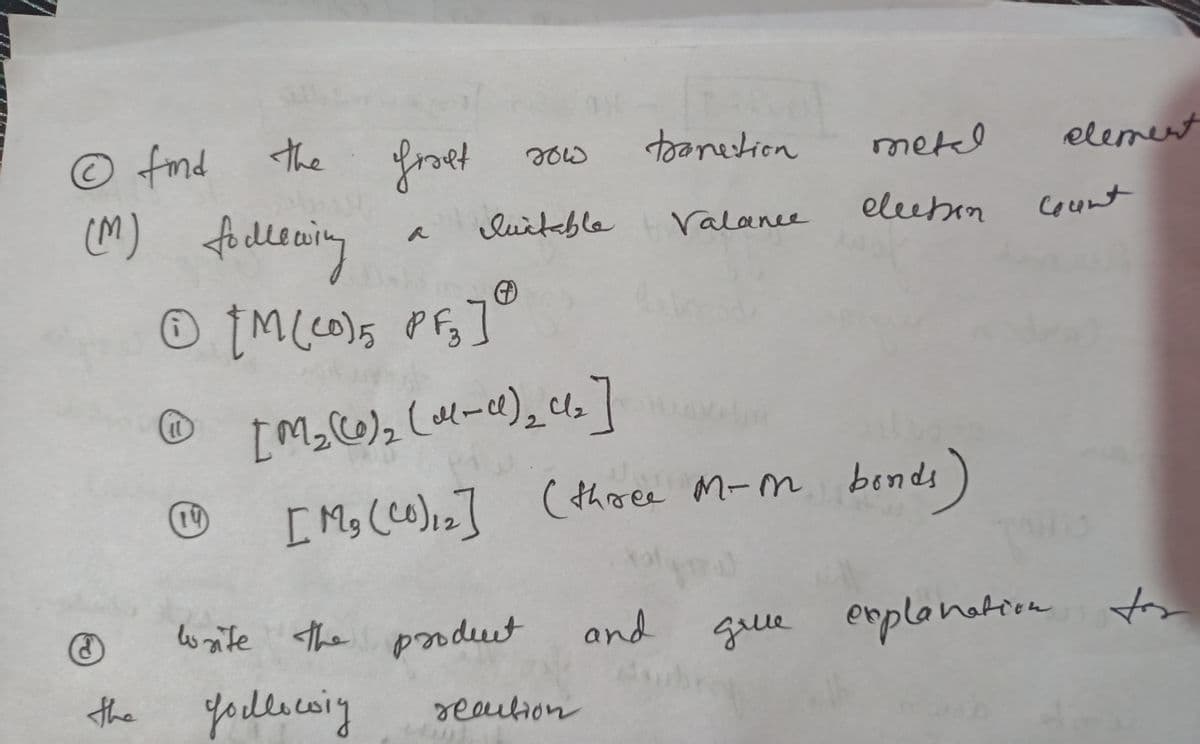 © find the first row transition metal element
(M) following a suitable Valance electron count
(i) [M(CO)5 PF3]⊕
(ii) [M2(CO)2 (μ-cl)2 Cl2]
(iii) [M3(CO)12] (three M-m bonds)
(d) write the product and give explanation for
the following reaction